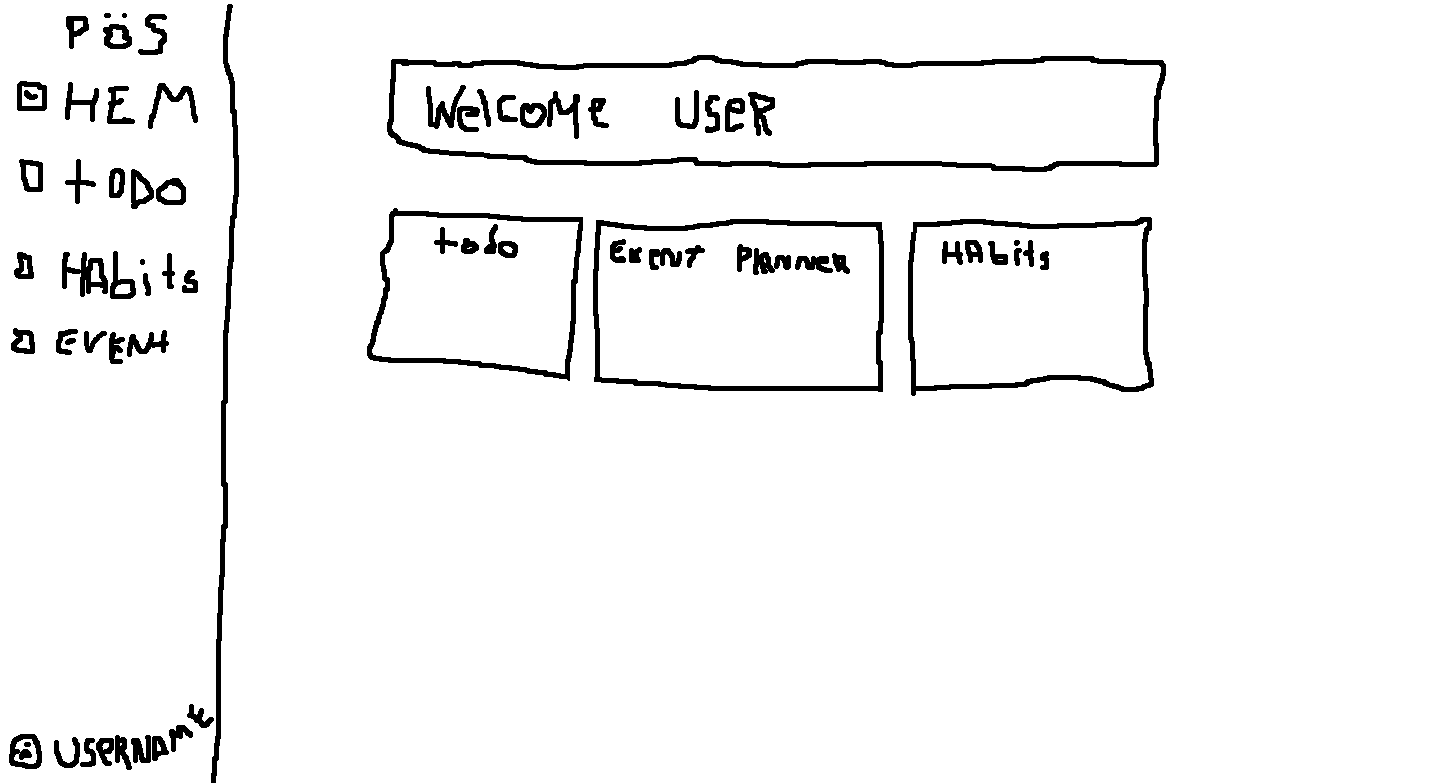 PÖS
HEM
toDo
HAbits
EVENt
USERNAME
Welcome USER
todo
EVENT PlANNER
HAbits